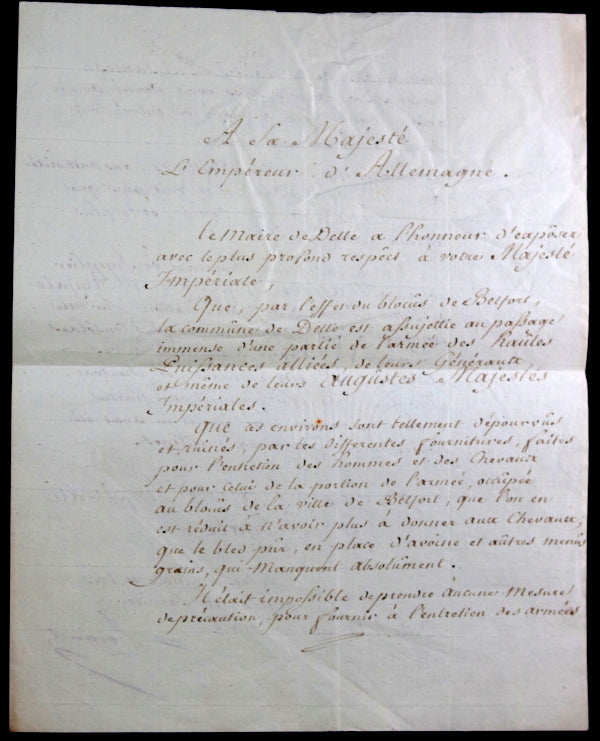 A Sa Majesté
L'Empéreur d'Allemagne.
le Maire de Delle a l'honneur d'expôser
avec le plus profond respêct à votre Majesté
Impériale,
Que, par l'effet du blocûs de Belfort,
la commûne de Delle est assujettie au passage
immense d'une partie de l'armée des Haûtes
Puissances alliées, de leurs Généraux
et même de leurs augustes Majestés
Impériales.
Que ses environs sont tellement dépourvûs
et ruinés, par les differentes fournitures, faites
pour l'entretien des hommes et des Chevaux
et pour celui de la portion de l'armée, occupée
au blocûs de la ville de Belfort, que l'on en
est réduit à n'avoir plus à donner aux Chevaux,
que le bled pûr, en place d'avoine et aûtres menûs
grains, qui manquent absolûment.
Il était impossible de prendre aucune mesure
de précaution, pour fournir à l'entretien des armées